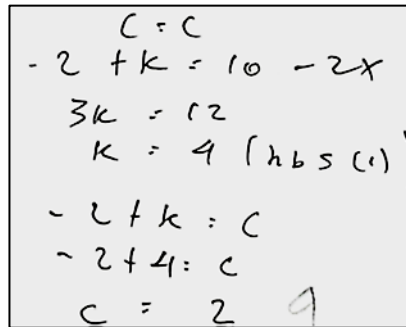 C = C
- 2 + k = 10 - 2x
3k = 12
k = 4 (hbs (1)
- 2 + k = C
- 2 + 4 = C
C = 2